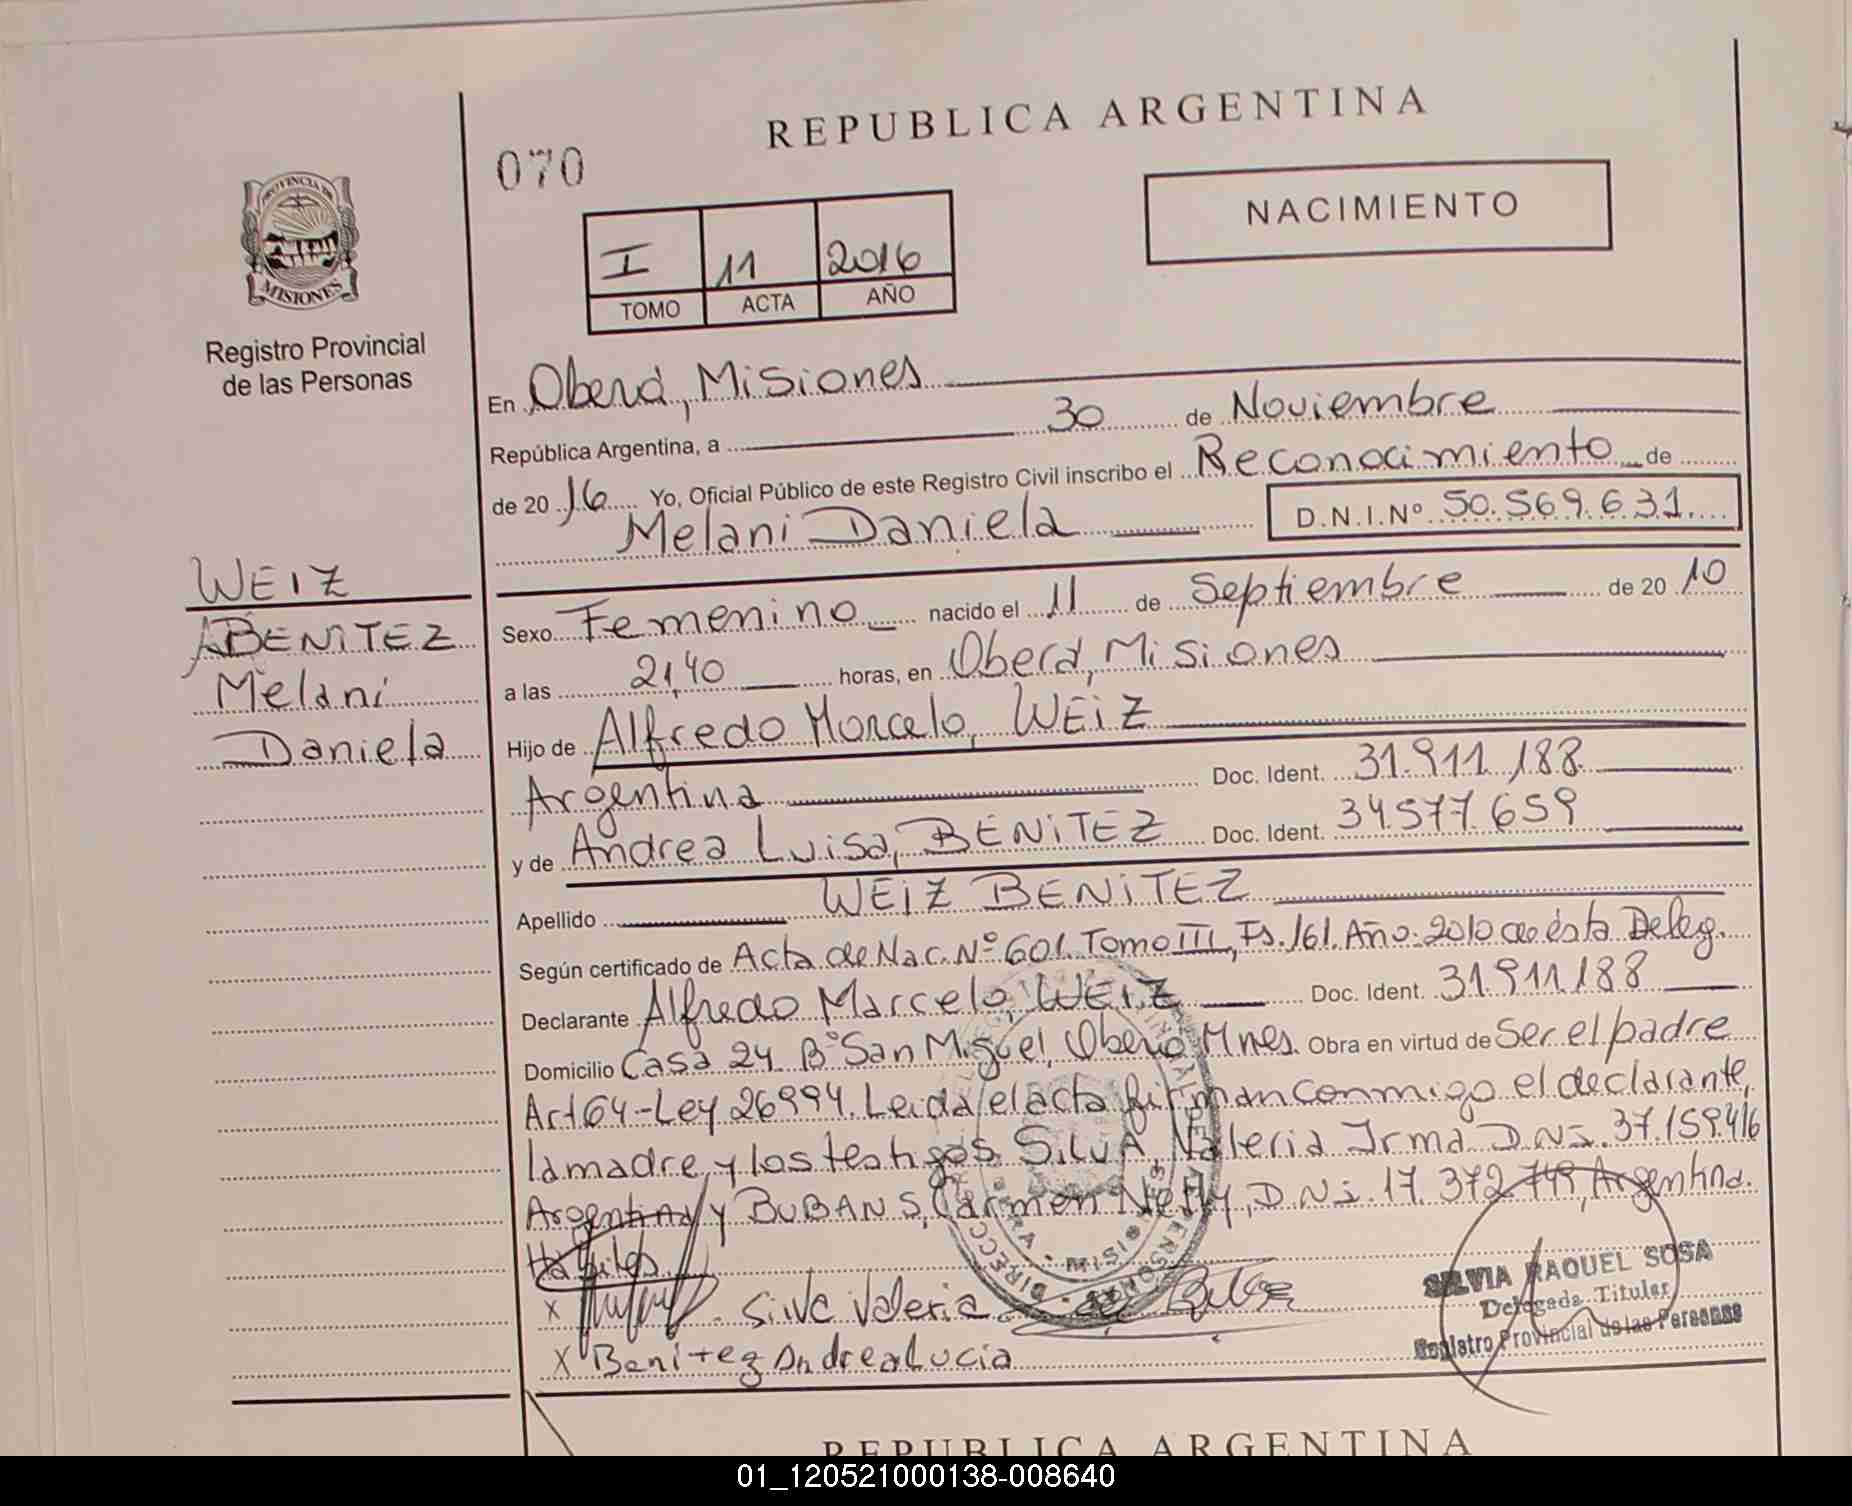 REPUBLICA ARGENTINA
070
NACIMIENTO
I 11 2016
TOMO ACTA AÑO
PROVINCIA DE
MISIONES
Registro Provincial
de las Personas
WEIZ
BENITEZ
Melani
Daniela
En Oberá, Misiones
República Argentina, a 30 de Noviembre
de 20 16 Yo, Oficial Público de este Registro Civil inscribo el Reconocimiento de
Melani Daniela D.N.I.Nº 50.569.631
Sexo Femenino nacido el 11 de Septiembre de 20 10
a las 21,40 horas, en Oberá, Misiones
Hijo de Alfredo Marcelo, WEIZ
Argentina Doc. Ident. 31.911.188
y de Andrea Luisa, BENITEZ Doc. Ident. 34.577.659
Apellido WEIZ BENITEZ
Según certificado de Acta de Nac. Nº 601. Tomo III, Fs. 161. Año. 2010 de ésta Deleg.
Declarante Alfredo Marcelo, WEIZ Doc. Ident. 31.911.188
Domicilio Casa 24 Bº San Miguel, Oberá Mnes. Obra en virtud de Ser el padre
Art 64-Ley 26994. Leida el acta firman conmigo el declarante,
la madre, y los testigos SILVA, Valeria Irma D.N.I. 37.159.416
Argentina y BUBANS, Carmen Nelly, D.N.I. 17.372.749, Argentina.
Hábiles
x Silva Valeria
X Benitez Andrea Lucia
SILVIA RAQUEL SOSA
Delegada Titular
Registro Provincial de las Personas
REPUBLICA ARGENTINA
01_120521000138-008640